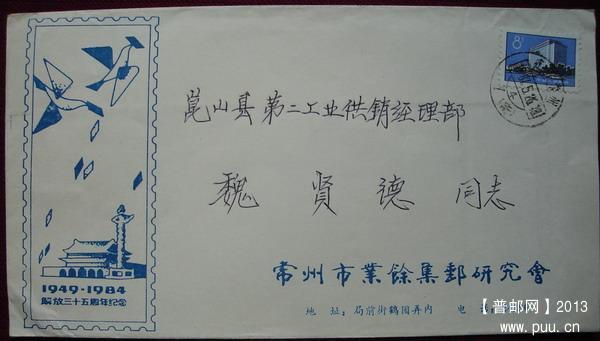 8分
崑山县第二工业供销经理部
魏贤德 同志
1949·1984
解放三十五周年纪念
常州市業餘集郵研究會
地 址：局前街鶴园弄内 电
【普邮网】2013
www.puu.cn